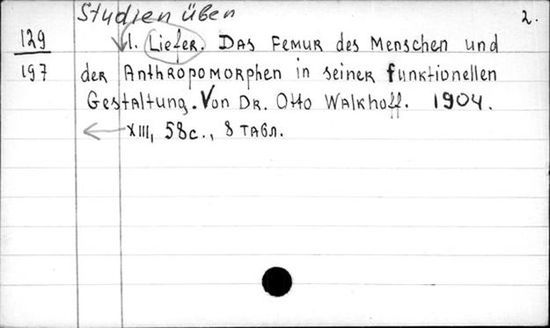 Studien üben 2.
129
197
1. Liefer. Das Femur des Menschen und
der Anthropomorphen in seiner funktionellen
Gestaltung. Von Dr. Otto Walkhoff. 1904.
XIII, 58c., 8 табл.